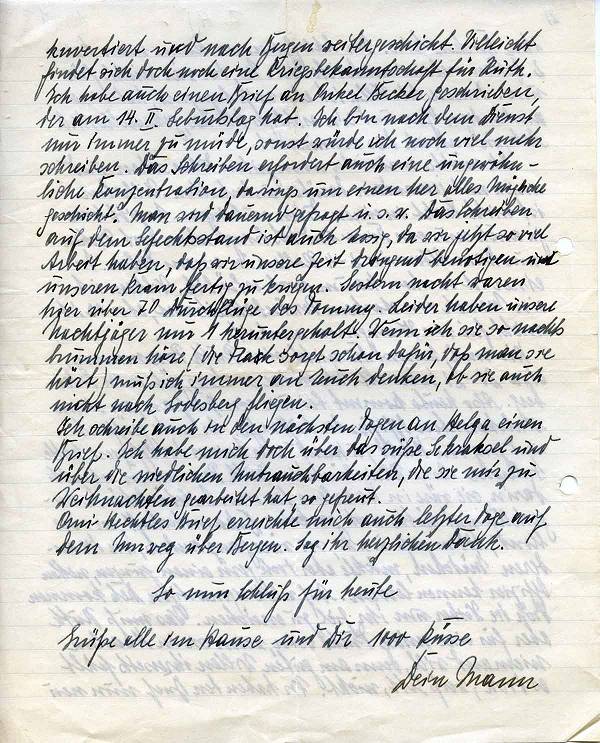 kuvertiert und nach Bergen weitergeschickt. Vielleicht
findet sich doch noch eine Kriegsbekanntschaft für Ruth.
Ich habe auch einen Brief an Onkel Becker geschrieben,
der am 14. II. Geburtstag hat. Ich bin nach dem Dienst
nur immer zu müde, sonst würde ich noch viel mehr
schreiben. Das Schreiben erfordert auch eine ungewöhn-
liche Konzentration, da rings um einen her alles Mögliche
geschieht. Man wird dauernd gefragt u.s.w. Das Schreiben
auf dem Gefechtsstand ist auch Essig, da wir jetzt so viel
Arbeit haben, daß wir unsere Zeit dringend benötigen um
unseren Kram fertig zu kriegen. Gestern nacht waren
hier über 70 Durchflüge des Tommy. Leider haben unsere
Nachtjäger nur 1 heruntergeholt. Wenn ich sie so nachts
brummen höre (die Flak sorgt schon dafür, daß man sie
hört) muß ich immer an Euch denken, ob sie auch
nicht nach Godesberg fliegen.
Ich schreibe auch in den nächsten Tagen an Helga einen
Brief. Ich habe mich doch über das süße Gekraksel und
über die niedlichen Unbrauchbarkeiten, die sie mir zu
Weihnachten gearbeitet hat, so gefreut.
Omi Brief erreichte mich auch letzter Tage auf
dem Umweg über Bergen. Sag ihr herzlichen Dank.
So nun Schluß für heute
Grüße alle im Hause und Dir 1000 Küsse
Dein Mann